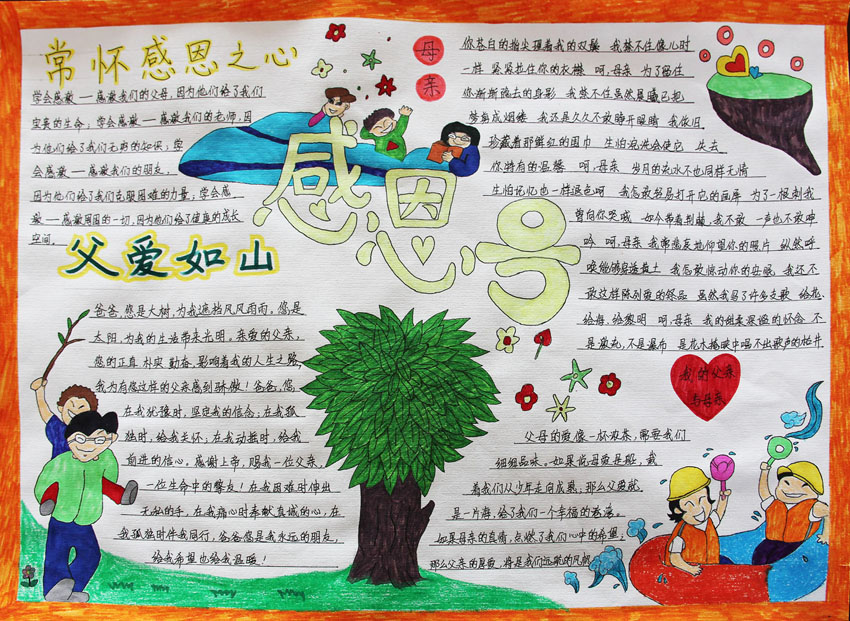 常怀感恩之心
学会感激——感激我们的父母,因为他们给了我们
宝贵的生命;学会感激——感激我们的老师,因
为他们给了我们无穷的知识;学
会感激——感激我们的朋友,
因为他们给了我们克服困难的力量;学会感
激——感激周围的一切,因为他们给了健康的成长
空间。
感恩号
父爱如山
爸爸,您是大树,为我遮挡风风雨雨。您是
太阳,为我的生活带来光明。亲爱的父亲,
您的正直朴实勤奋,影响着我的人生之路,
我为有您这样的父亲感到骄傲!爸爸,您
在我犹豫时,坚定我的信念;在我孤
独时,给我关怀;在我动摇时,给我
前进的信心。感谢上帝,赐我一位父亲,
一位生命中的挚友!在我困难时伸出
无私的手,在我痛心时奉献真诚的心,在
我孤独时伴我同行,爸爸您是我永远的朋友,
给我希望也给我温暖!
母亲
你苍白的指尖理着我的双鬓 我禁不住像儿时
一样 紧紧拉住你的衣襟 呵,母亲 为了留住
你渐渐隐去的身影 我禁不住虽然晨曦已把
梦剪成烟缕 我还是久久不敢睁开眼睛 我依旧
珍藏着那鲜红的围巾 生怕浣洗会使它 失去
你特有的温馨 呵,母亲 岁月的流水不也同样无情
生怕记忆也一样退色呵 我怎敢轻易打开它的画屏 为了一根刺我
曾向你哭喊 如今带着荆冠,我不敢 一声也不敢呻
吟 呵,母亲 我常悲哀地仰望你的照片 纵然呼
唤能够穿透黄土 我怎敢惊动你的安眠 我还不
敢这样陈列爱的祭品 虽然我写了许多支歌 给花、
给海、给黎明 呵,母亲 我的甜柔深谧的怀念 不
是激流,不是瀑布 是花木掩映中唱不出歌声的枯井
我的父亲
与母亲
父母的爱像一杯浓茶,需要我们
细细品味。如果说母爱是船,载
着我们从少年走向成熟,那么父爱就
是一片海,给了我们一个幸福的港湾。
如果母亲的真情,点燃了我们心中的希望;
那么父亲的恩爱,将是我们远航的风帆